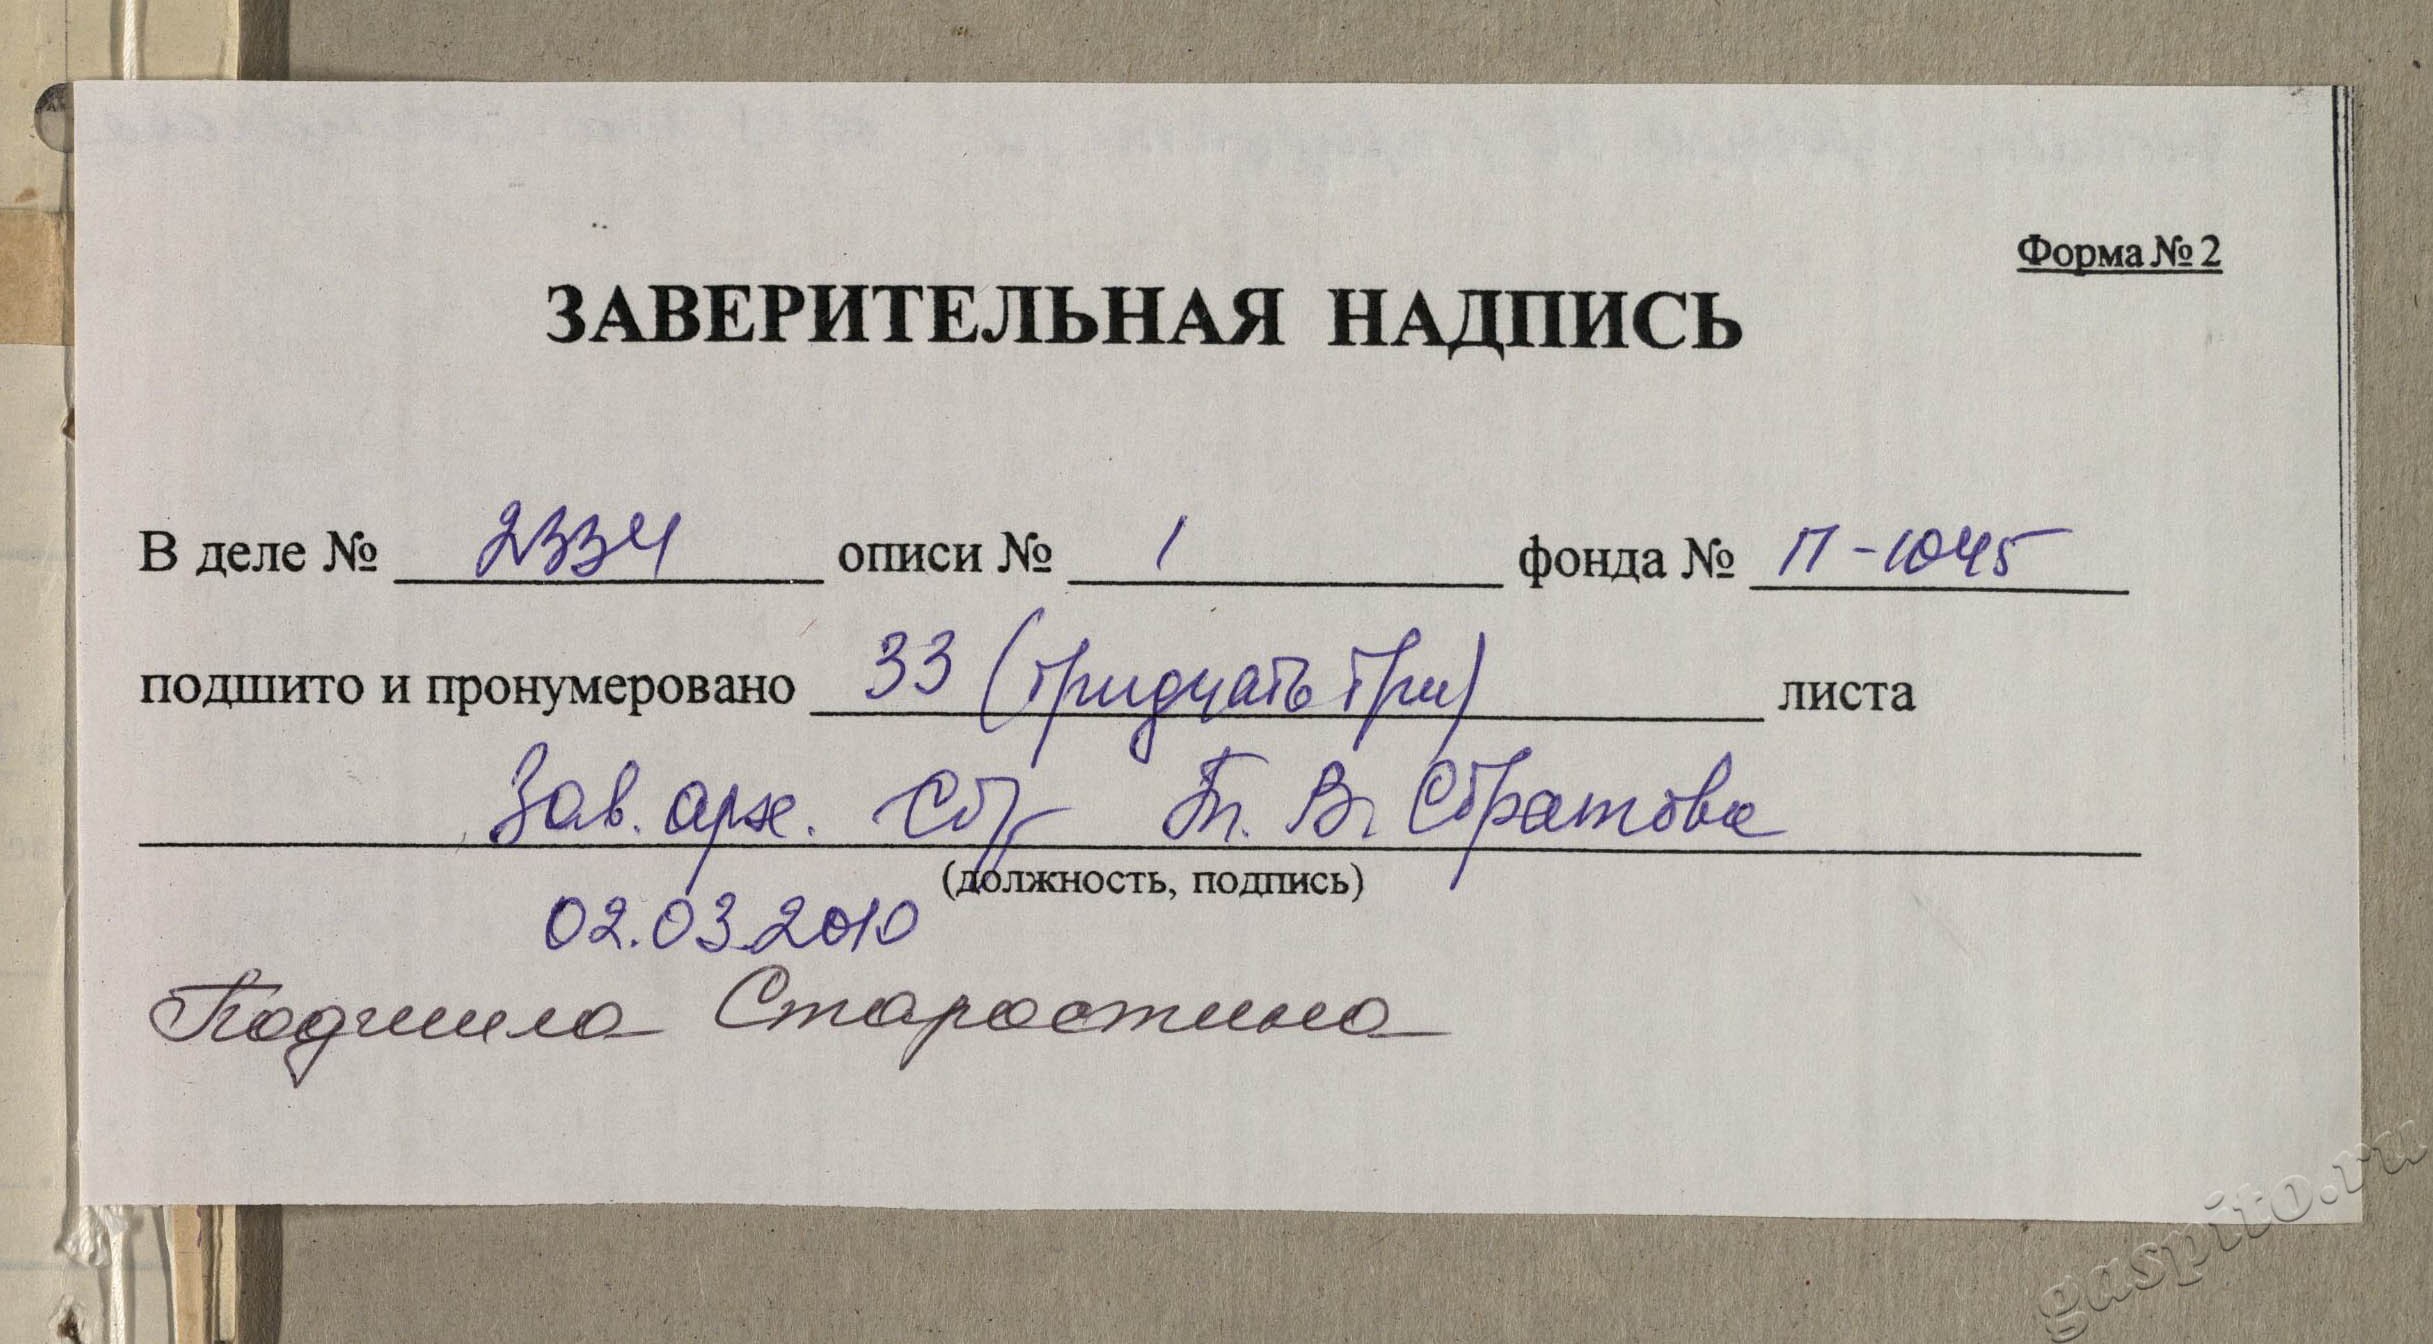 Форма № 2
ЗАВЕРИТЕЛЬНАЯ НАДПИСЬ
В деле № 2334 описи № 1 фонда № П-1045
подшито и пронумеровано 33 (тридцать три) листа
Зав. арх. В.
(должность, подпись)
02.03.2010
Подшила Старостина
gaspito.ru